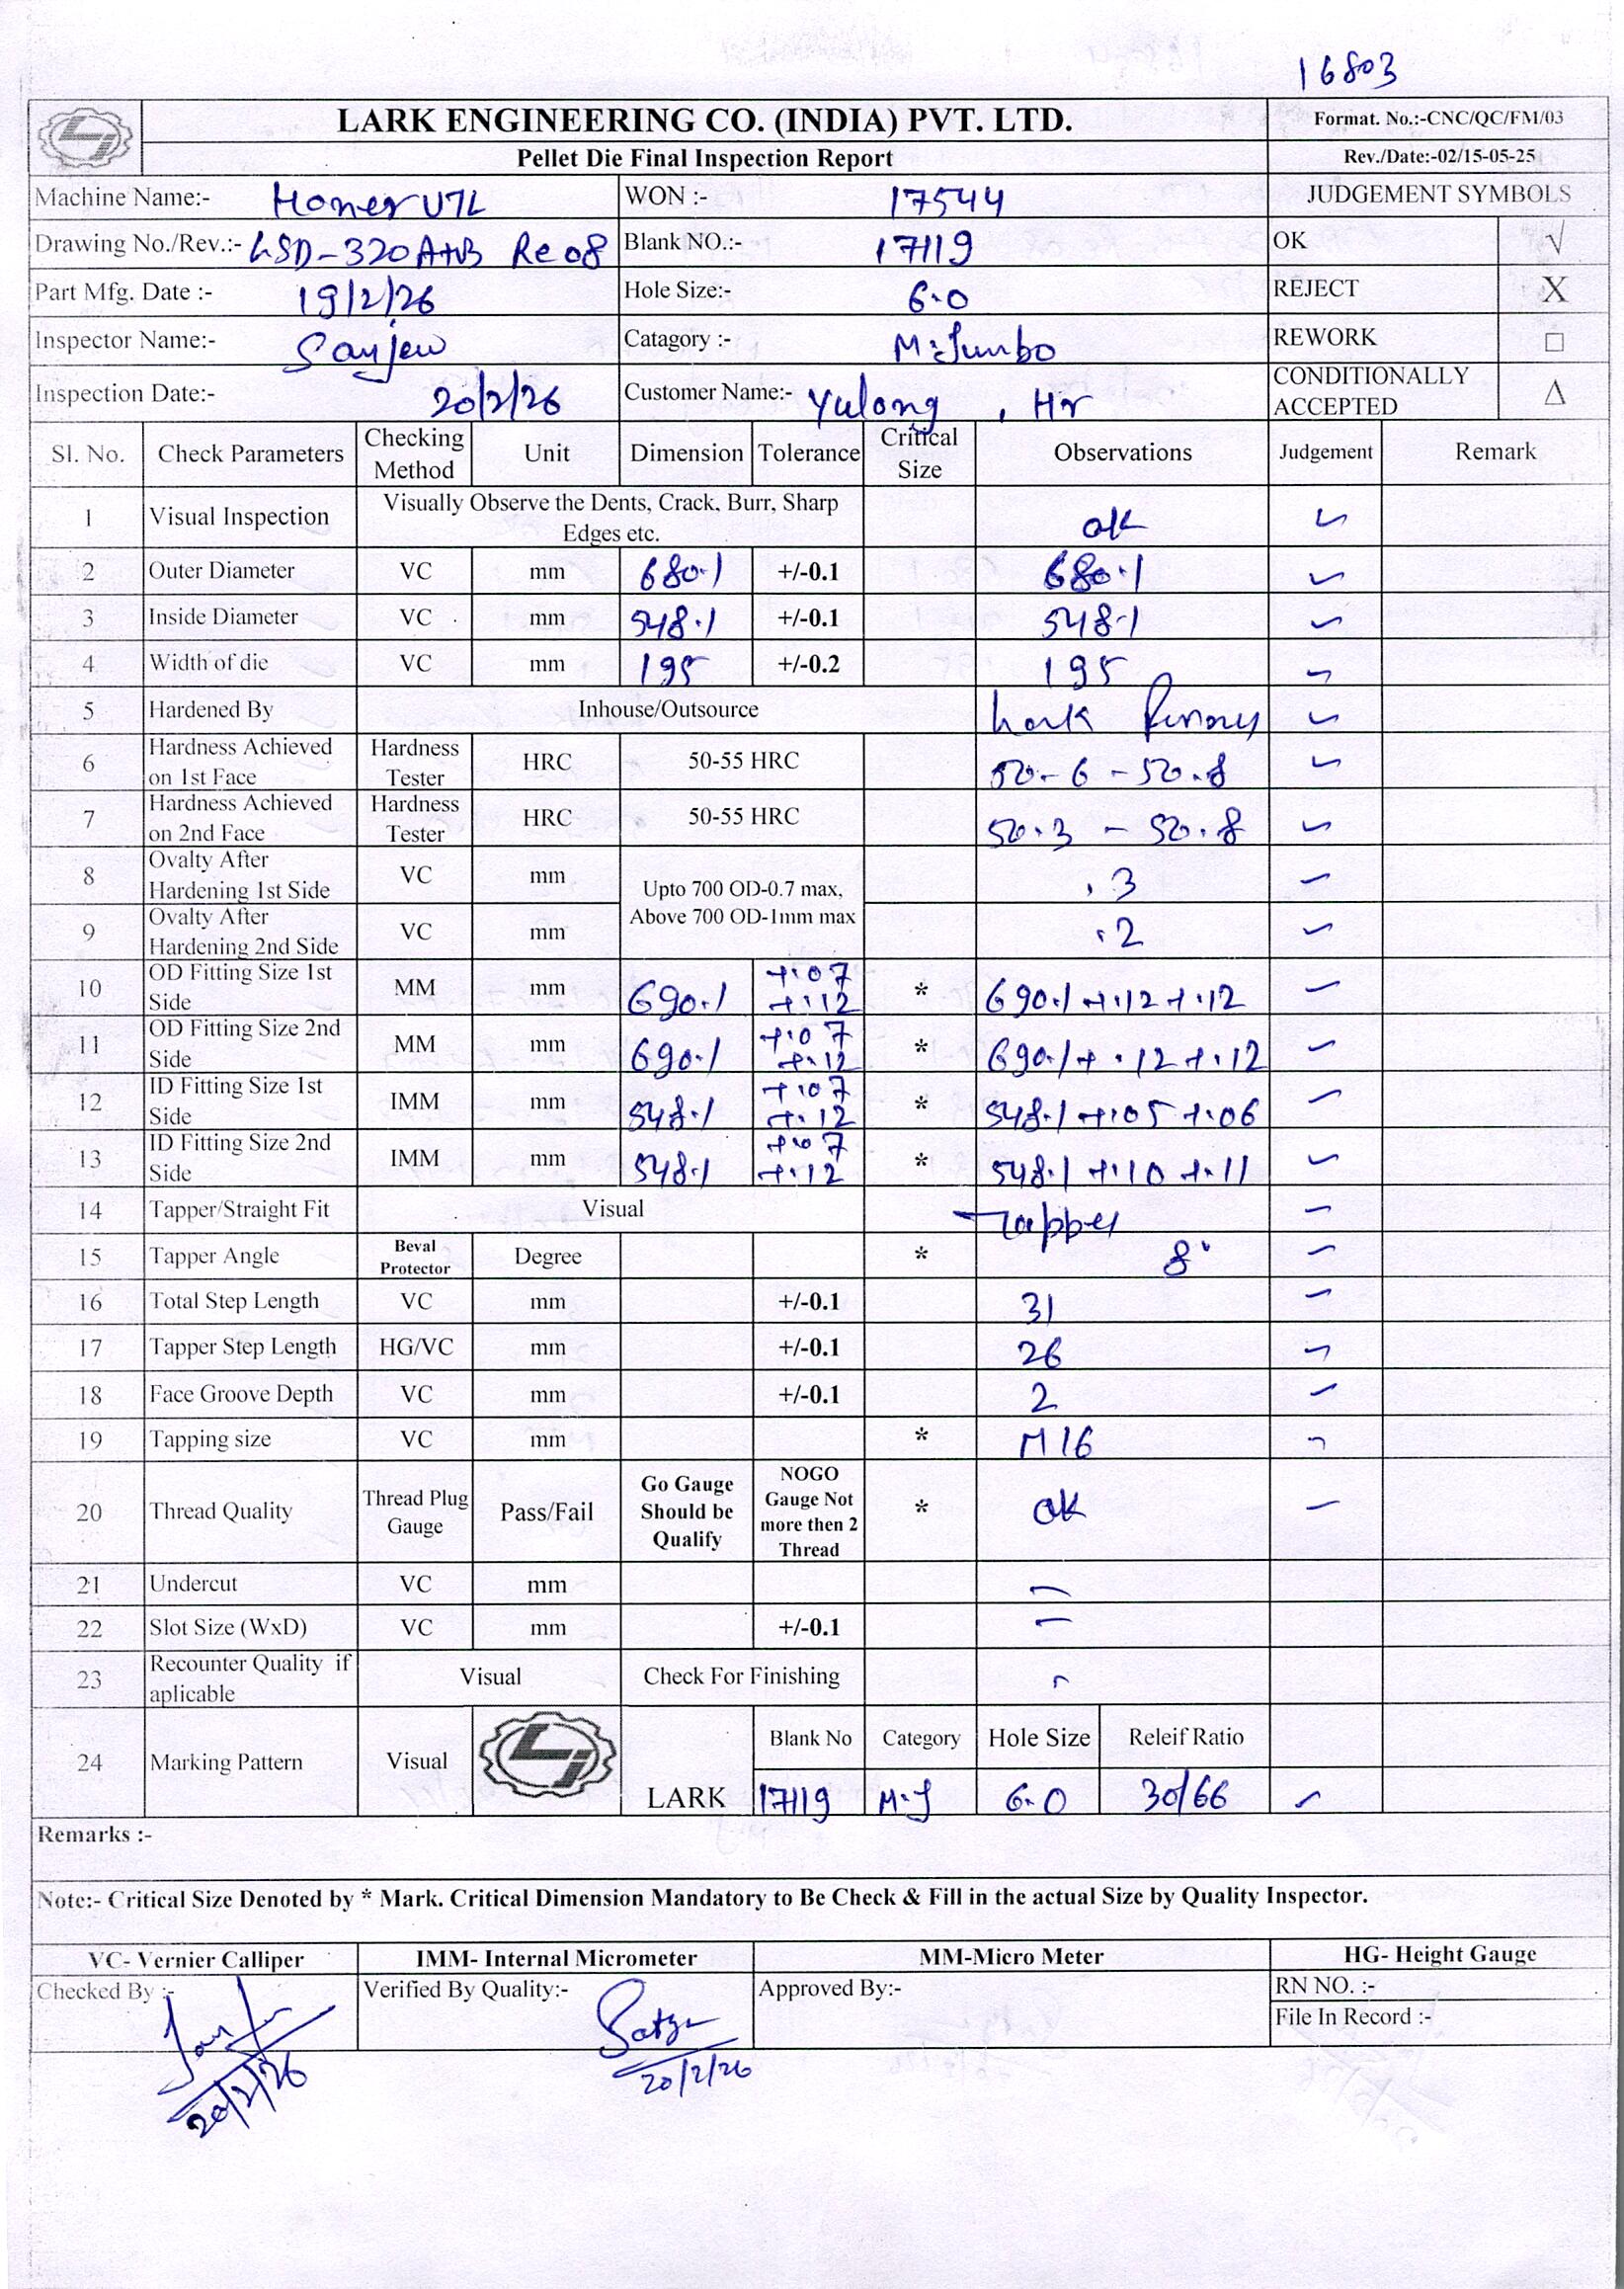 16803
LARK ENGINEERING CO. (INDIA) PVT. LTD. Format. No.:-CNC/QC/FM/03
Pellet Die Final Inspection Report Rev./Date:-02/15-05-25
Machine Name:- Homer V7L WON :- 17544 JUDGEMENT SYMBOLS
Drawing No./Rev.:- LSD-320A+B Re 08 Blank NO.:- 17119 OK √
Part Mfg. Date :- 19/2/26 Hole Size:- 6.0 REJECT X
Inspector Name:- Sanjeev Catagory :- M:Jumbo REWORK □
Inspection Date:- 20/2/26 Customer Name:- Yulong, Hr CONDITIONALLY ACCEPTED Δ
Sl. No. Check Parameters Checking Method Unit Dimension Tolerance Critical Size Observations Judgement Remark
1 Visual Inspection Visually Observe the Dents, Crack, Burr, Sharp Edges etc. ok ✓
2 Outer Diameter VC mm 680.1 +/-0.1 680.1 ✓
3 Inside Diameter VC mm 548.1 +/-0.1 548.1 ✓
4 Width of die VC mm 195 +/-0.2 195 ✓
5 Hardened By Inhouse/Outsource Lark ✓
6 Hardness Achieved on 1st Face Hardness Tester HRC 50-55 HRC 50.6 - 50.8 ✓
7 Hardness Achieved on 2nd Face Hardness Tester HRC 50-55 HRC 50.3 - 50.8 ✓
8 Ovalty After Hardening 1st Side VC mm Upto 700 OD-0.7 max, Above 700 OD-1mm max .3 ✓
9 Ovalty After Hardening 2nd Side VC mm .2 ✓
10 OD Fitting Size 1st Side MM mm 690.1 +.07 +.12 * 690.1 +.12 +.12 ✓
11 OD Fitting Size 2nd Side MM mm 690.1 +.07 +.12 * 690.1 + .12 +.12 ✓
12 ID Fitting Size 1st Side IMM mm 548.1 +.07 +.12 * 548.1 +.05 +.06 ✓
13 ID Fitting Size 2nd Side IMM mm 548.1 +.07 +.12 * 548.1 +.10 +.11 ✓
14 Tapper/Straight Fit Visual Tapper ✓
15 Tapper Angle Beval Protector Degree * 8° ✓
16 Total Step Length VC mm +/-0.1 31 ✓
17 Tapper Step Length HG/VC mm +/-0.1 26 ✓
18 Face Groove Depth VC mm +/-0.1 2 ✓
19 Tapping size VC mm * M16 ✓
20 Thread Quality Thread Plug Gauge Pass/Fail Go Gauge Should be Qualify NOGO Gauge Not more then 2 Thread * ok ✓
21 Undercut VC mm —
22 Slot Size (WxD) VC mm +/-0.1 —
23 Recounter Quality if aplicable Visual Check For Finishing
24 Marking Pattern Visual LARK Blank No Category Hole Size Releif Ratio
17119 M.J 6.0 30/66 ✓
Remarks :-
Note:- Critical Size Denoted by * Mark. Critical Dimension Mandatory to Be Check & Fill in the actual Size by Quality Inspector.
VC- Vernier Calliper IMM- Internal Micrometer MM-Micro Meter HG- Height Gauge
Checked By :- Verified By Quality:- Approved By:- RN NO. :-
File In Record :-
20/2/26 20/2/26